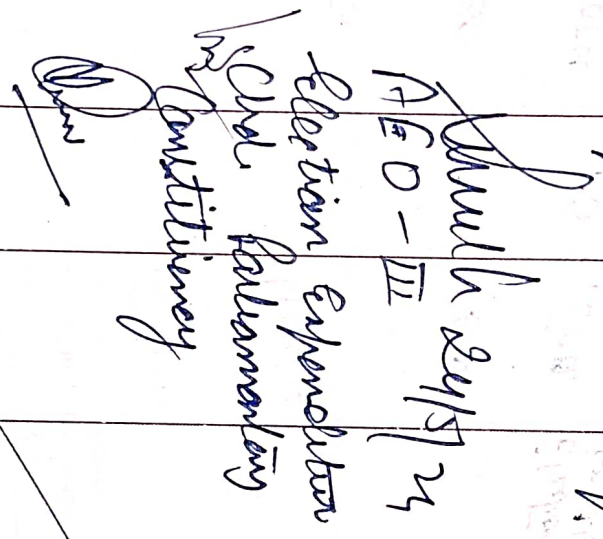 24/5/24
AEO - III
Election Expenditure
Chd. Parliamentary
Constituency